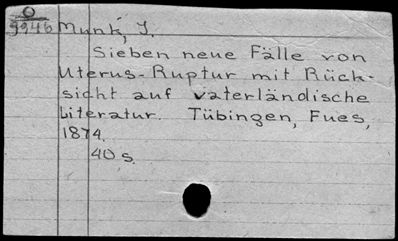 O
9946
Munk, I.
Sieben neue Fälle von
Uterus-Ruptur mit Rück-
sicht auf vaterländische
Literatur. Tübingen, Fues,
1874.
40 s.